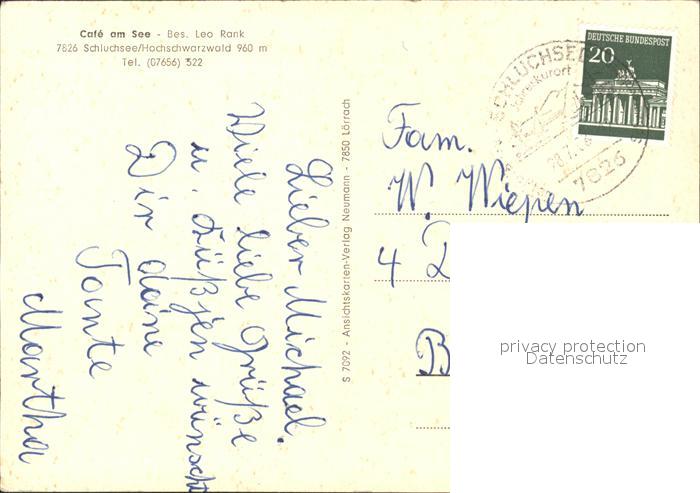 Café am See - Bes. Leo Rank
7826 Schluchsee/Hochschwarzwald 960 m
Tel. (07656) 522
Lieber Michael.
Viele liebe Grüße
u. Küßjen wünscht
Dir deine
Tante
Martha
S 7092 - Ansichtskarten-Verlag Neumann - 7850 Lörrach
DEUTSCHE BUNDESPOST
20
SCHLUCHSEE
7826
Fam.
W. Wiepen
4 D
B
privacy protection
Datenschutz